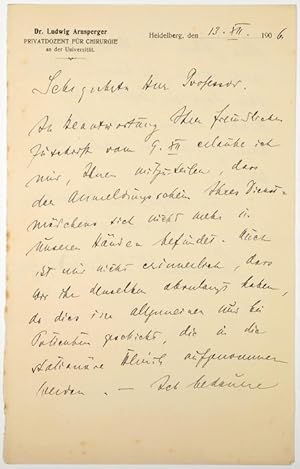 Dr. Ludwig Arnsperger
PRIVATDOZENT FÜR CHIRURGIE
an der Universität.
Heidelberg, den 13. XII. 1906.
Sehr geehrter Herr Professor.
In Beantwortung Ihrer freundlichen
Zuschrift vom 9. XII erlaube ich
mir, Ihnen mitzuteilen, dass
der Anmeldungsschein Ihres Dienst-
mädchens sich nicht mehr in
unseren Händen befindet. Auch
ist mir nicht erinnerlich, dass
wir ihr denselben abverlangt haben,
da dies im allgemeinen nur bei
Patienten geschieht, die in die
stationäre Klinik aufgenommen
werden. — Ich bedaure